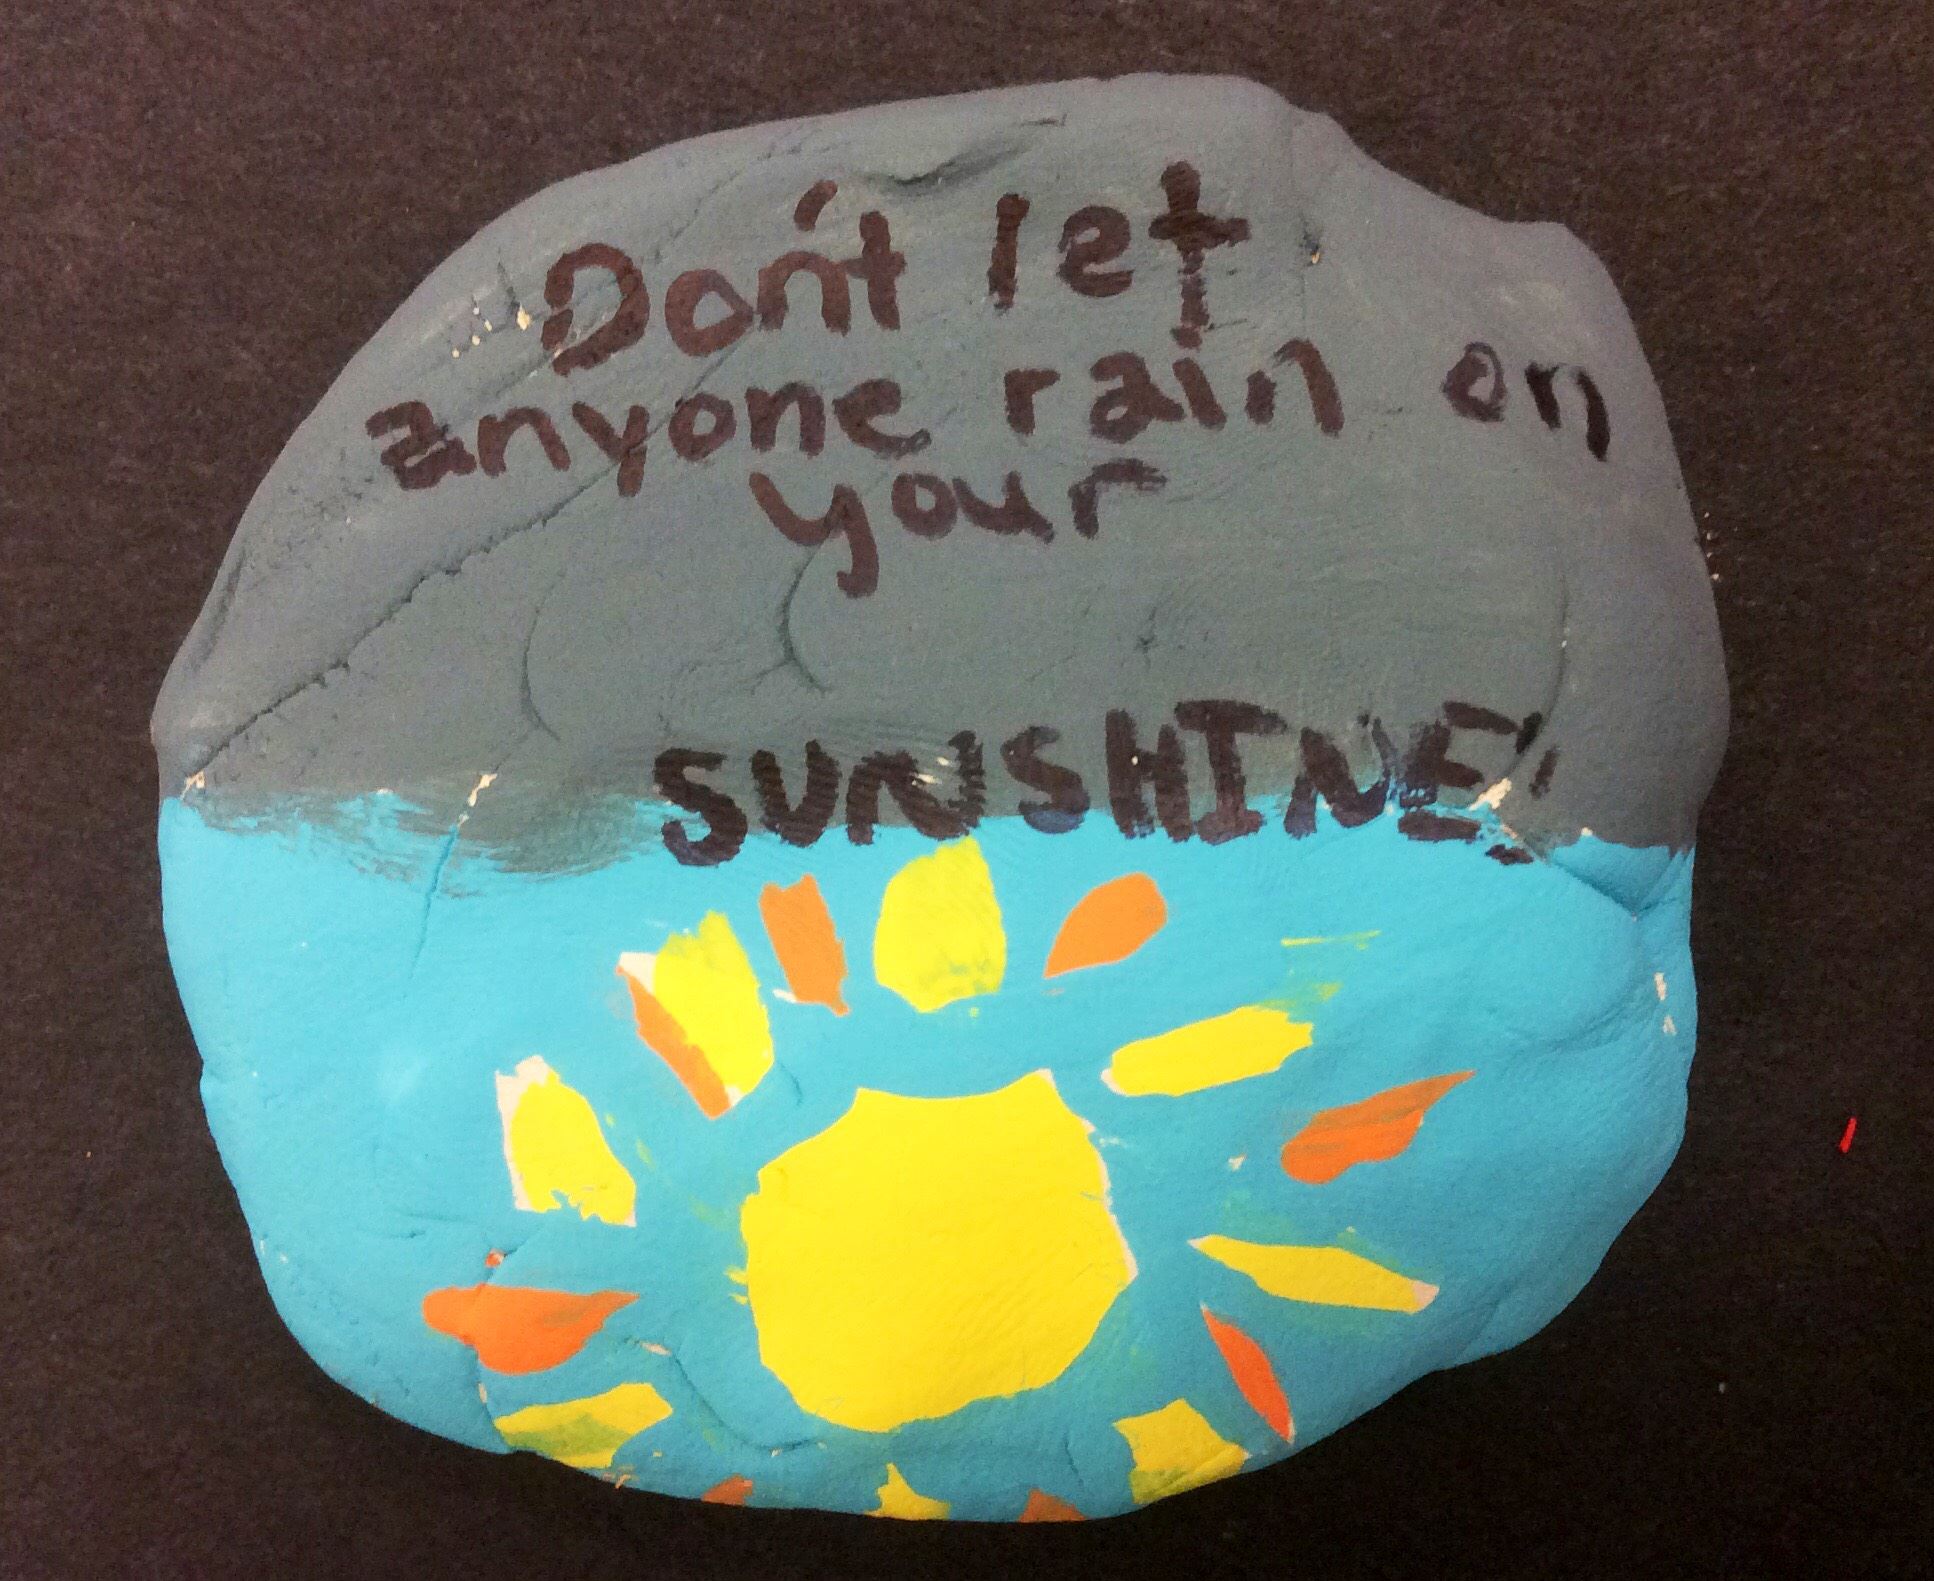 Don't let
anyone rain on
your
SUNSHINE!